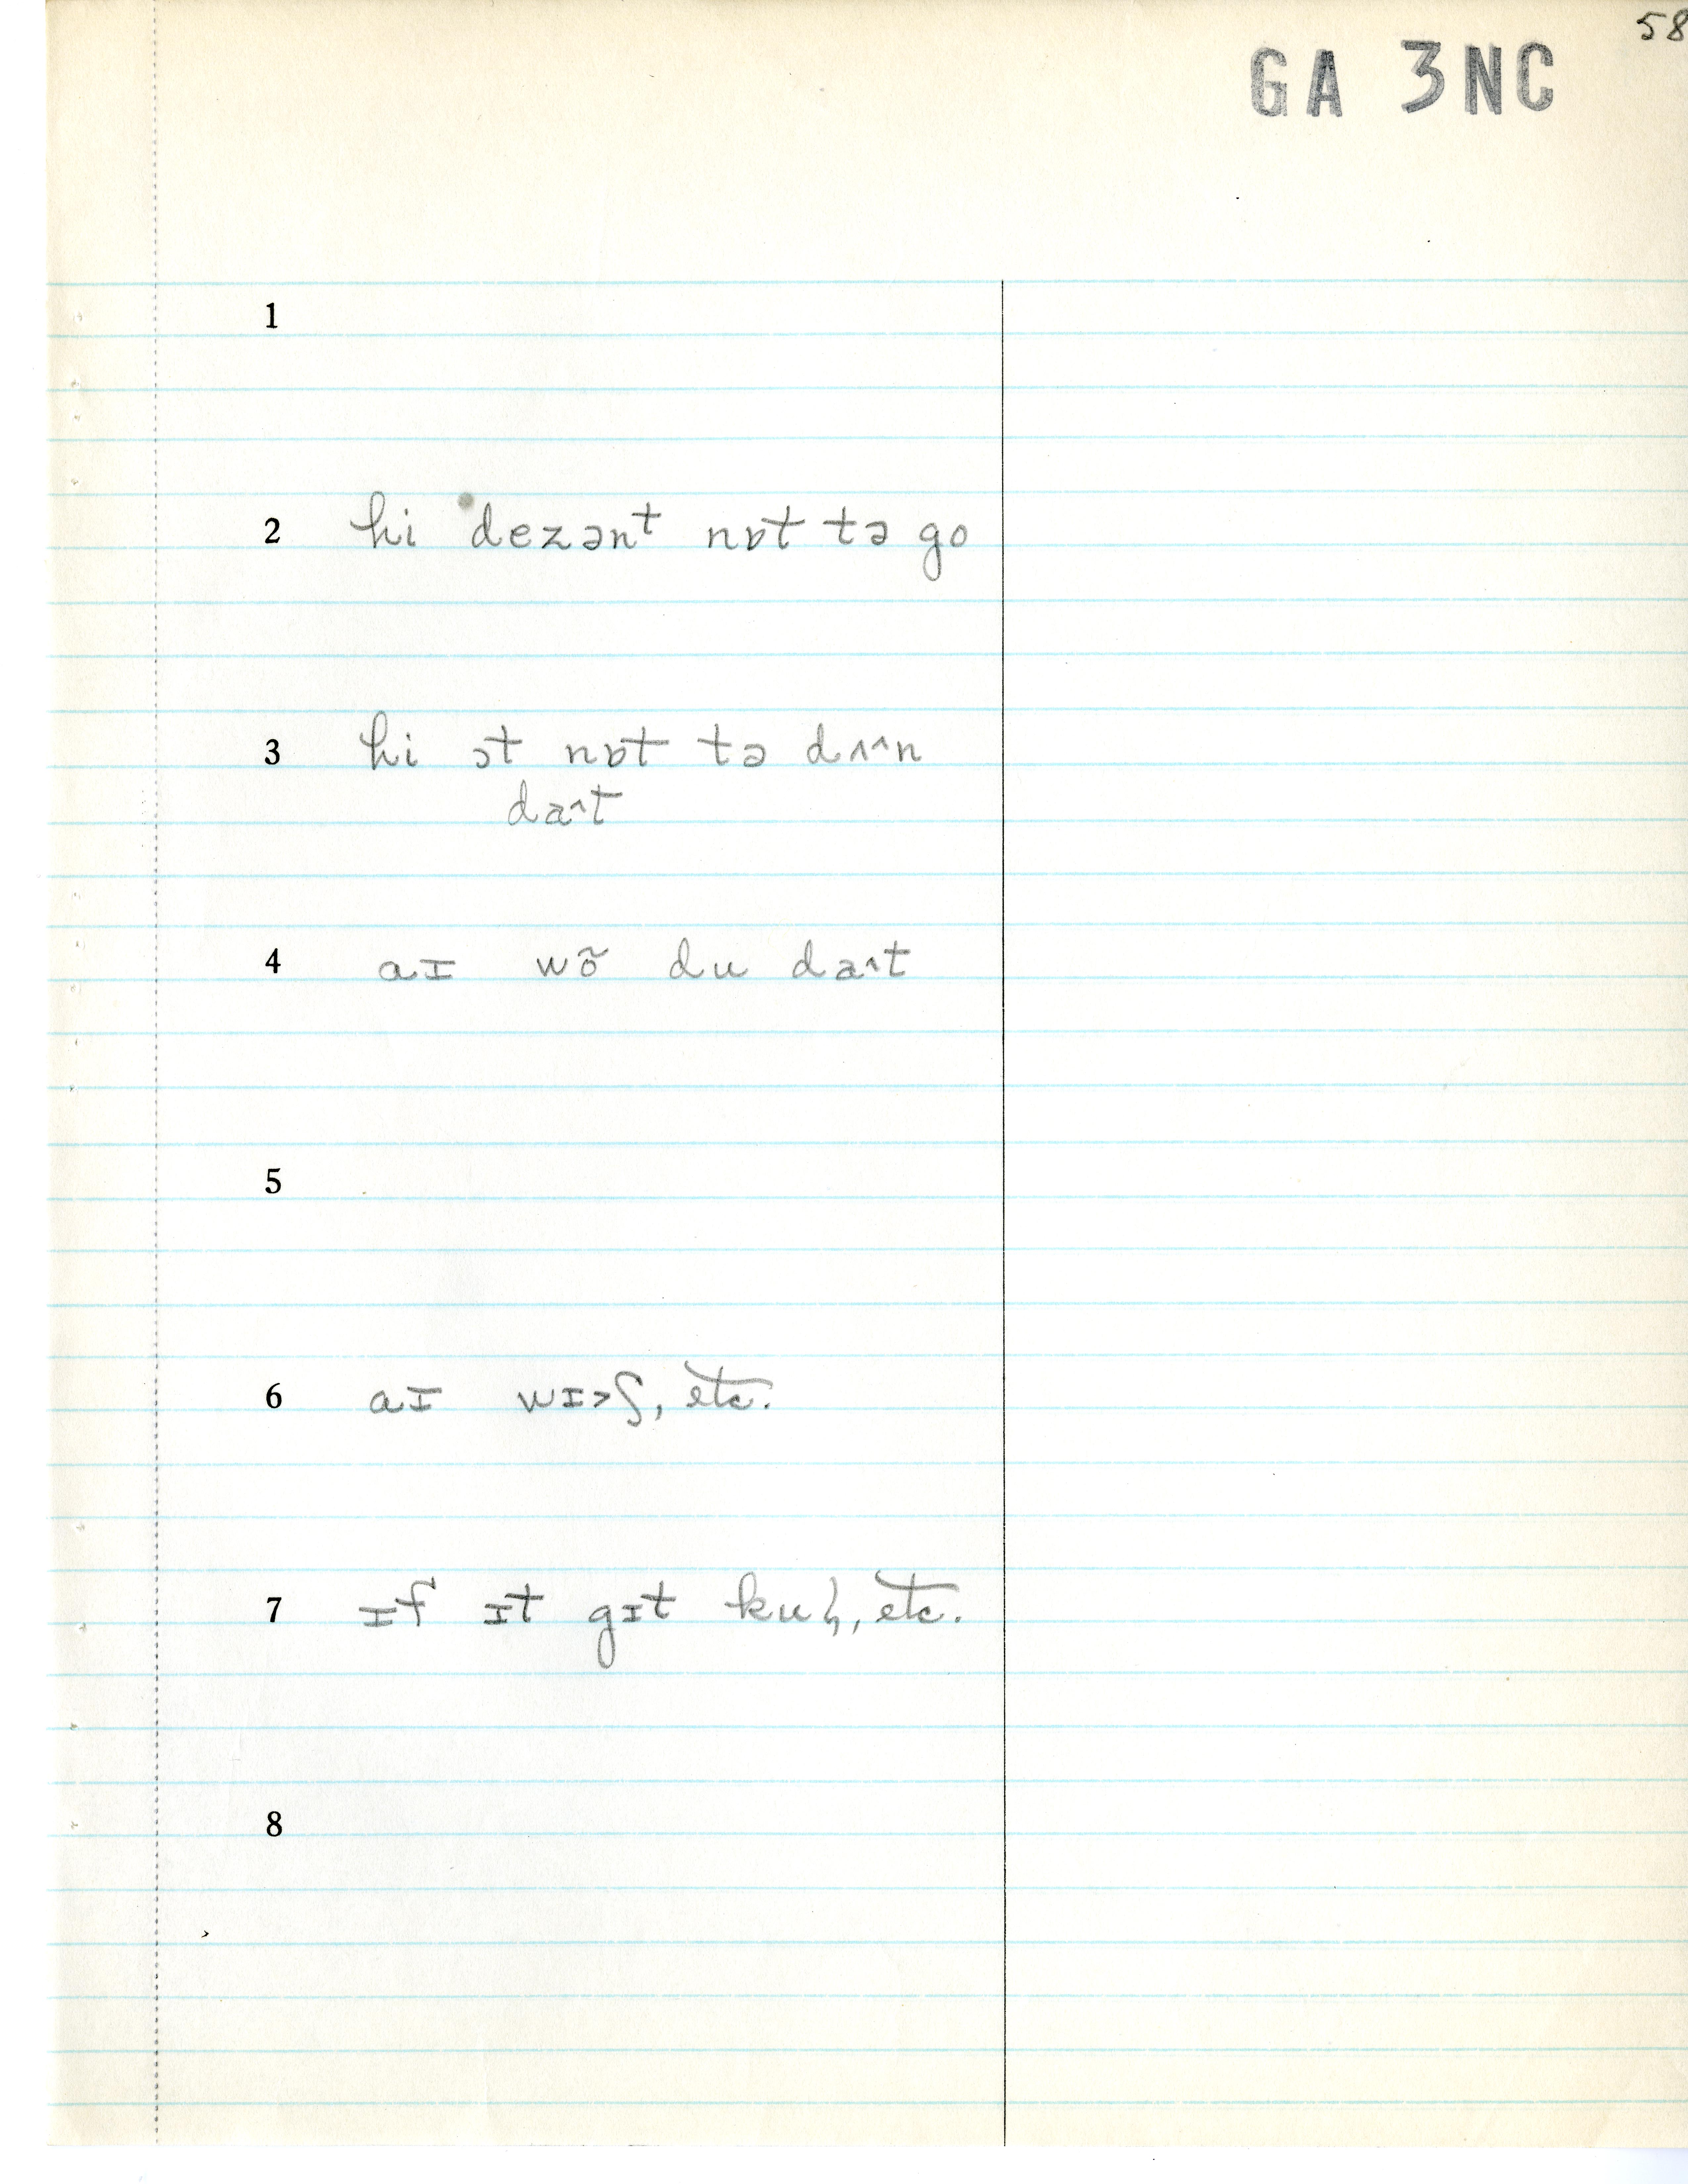 58
GA 3NC
1
2 hi dezənᵗ nɒt tə go
3 hi ɔt nɒt tə dʌ^n
da^t
4 aɪ wõ du da^t
5
6 aɪ wɪ>ʃ, etc.
7 ɪf ɪt gɪt kuɫ, etc.
8